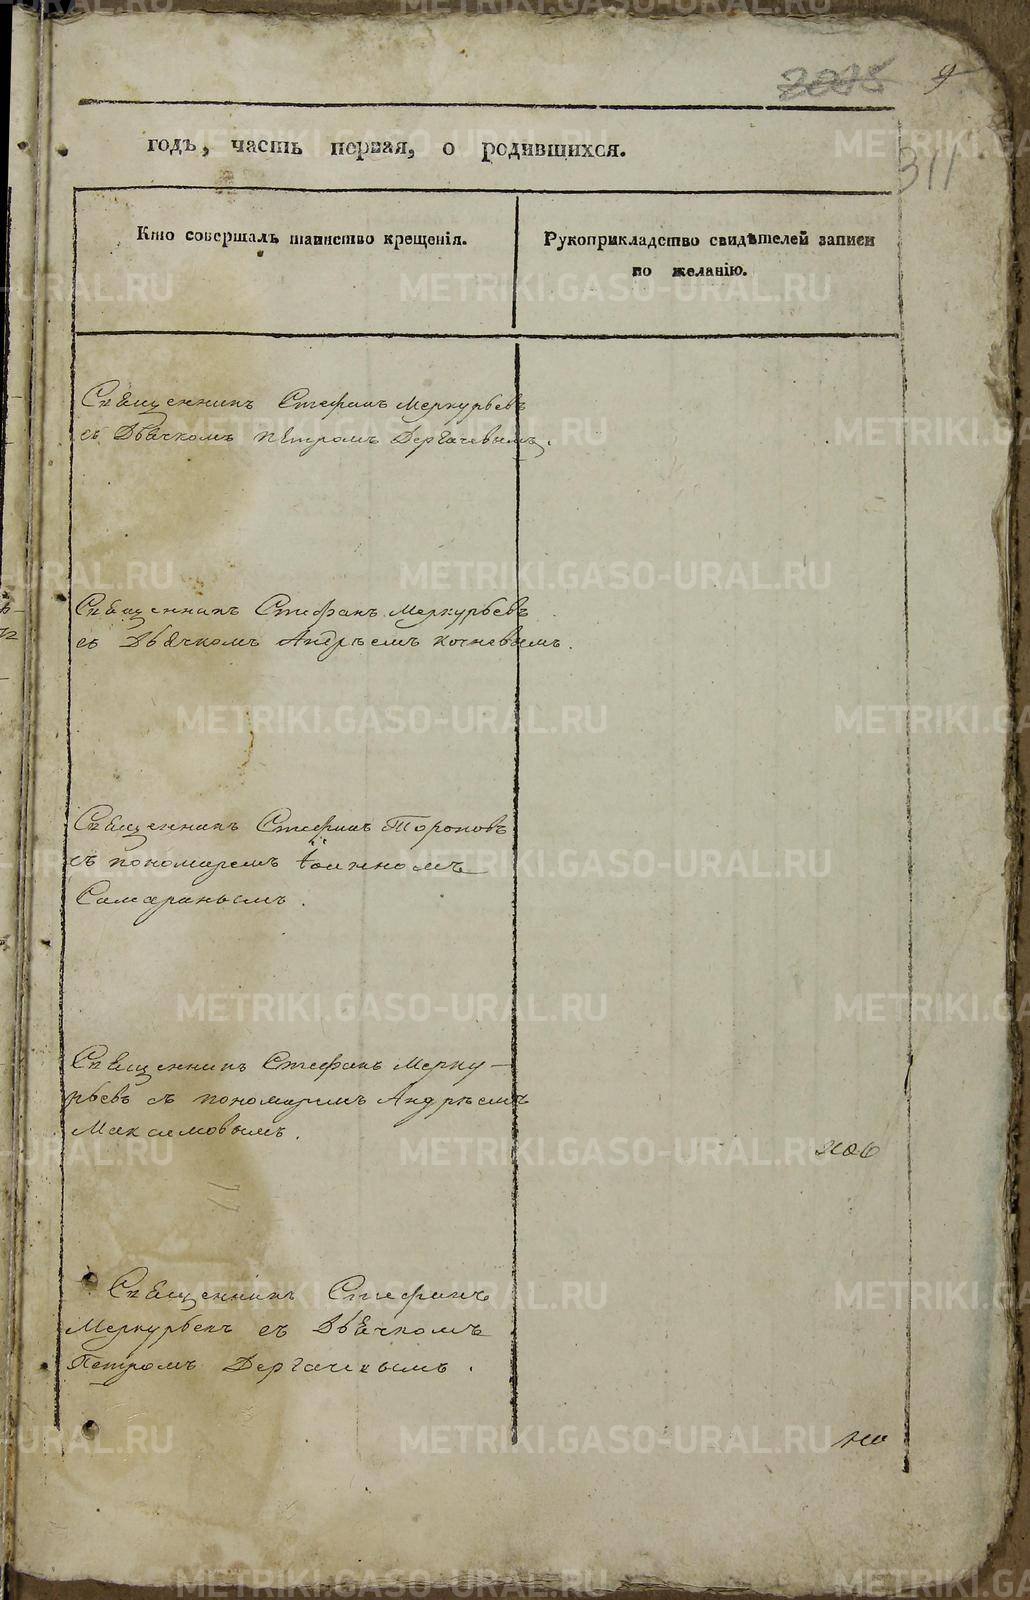 2075 9
311
годъ, часть первая, о родившихся.
Кто совершалъ таинство крещенія.
Рукоприкладство свидѣтелей записи
по желанію.
Священникъ Стефанъ Меркурьевъ
съ Дьячкомъ Петромъ Дергачевымъ.
Священникъ Стефанъ Меркурьевъ
съ Дьячкомъ Андреемъ Кочневымъ.
Священникъ Стефанъ Топоровъ
съ пономаремъ Іоанномъ
Самаранымъ.
Священникъ Стефанъ Мерку-
рьевъ съ пономаремъ Андреемъ
Максимовымъ.
Священникъ Стефанъ
Меркурьевъ съ Дьячкомъ
Петромъ Дергачевымъ.
METRIKI.GASO-URAL.RU